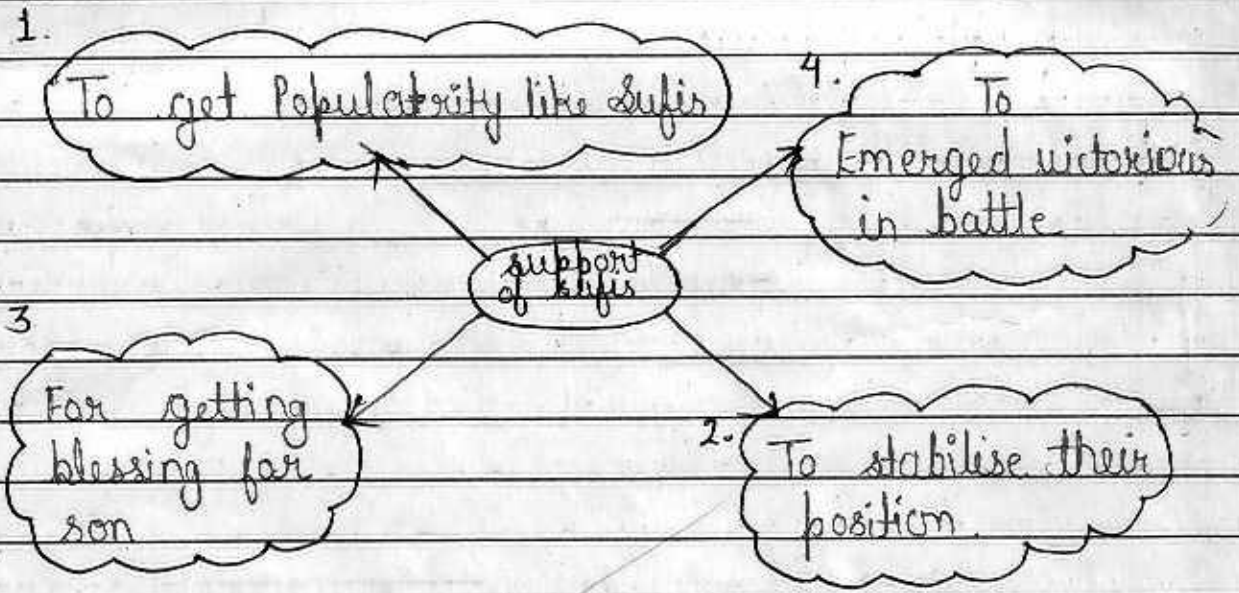 1.
To get Populatrity like Sufis
4.
To
Emerged victorious
in battle
support
of sufis
3
For getting
blessing for
son
2.
To stabilise their
position.